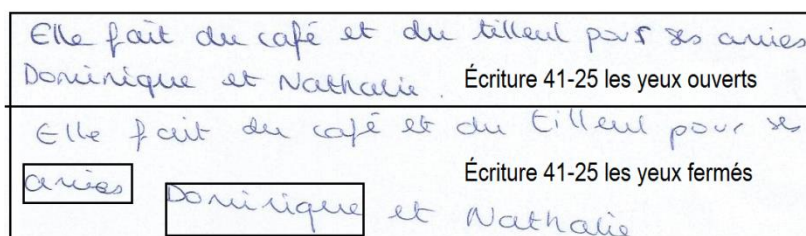 Elle fait du café et du tilleul pour ses amies
Dominique et Nathalie. Écriture 41-25 les yeux ouverts
Elle fait du café et du tilleul pour ses
amies Écriture 41-25 les yeux fermés
Dominique et Nathalie